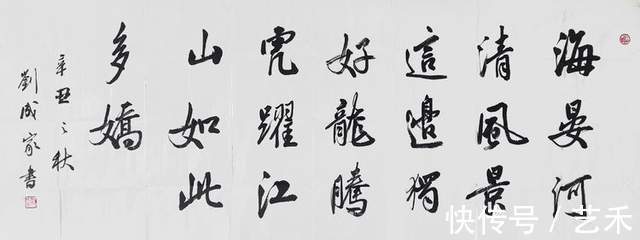 海晏河
清風景
這邊獨
好龍騰
虎躍江
山如此
多嬌
辛丑之秋
劉成家書
快传号/艺禾